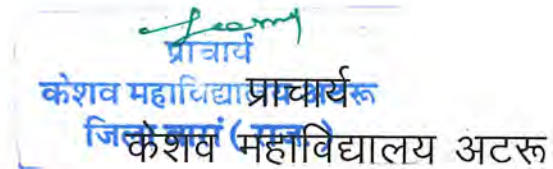 प्राचार्य
केशव महाविद्यालय अटरू
जिला बारां ( राज. )
प्राचार्य
केशव महाविद्यालय अटरू